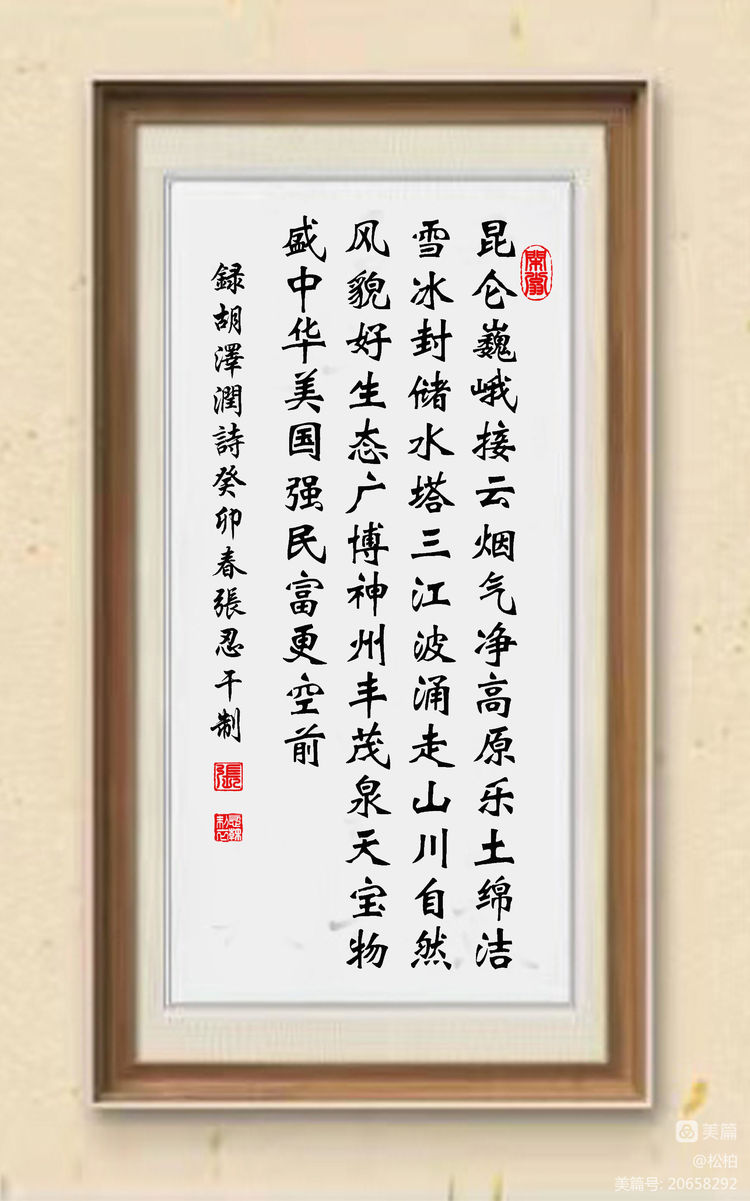 昆仑巍峨接云烟气净高原乐土绵洁
雪冰封储水塔三江波涌走山川自然
风貌好生态广博神州丰茂泉天宝物
盛中华美国强民富更空前
録胡澤潤詩癸卯春張忍干制
張
美篇
@松柏
美篇号: 20658292